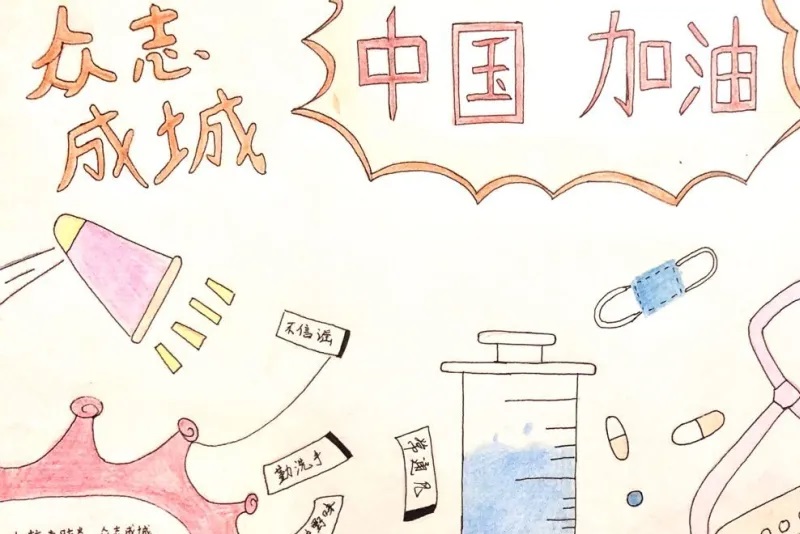 众志
成城
中国 加油
不信谣
勤洗手
常通风
众志成城